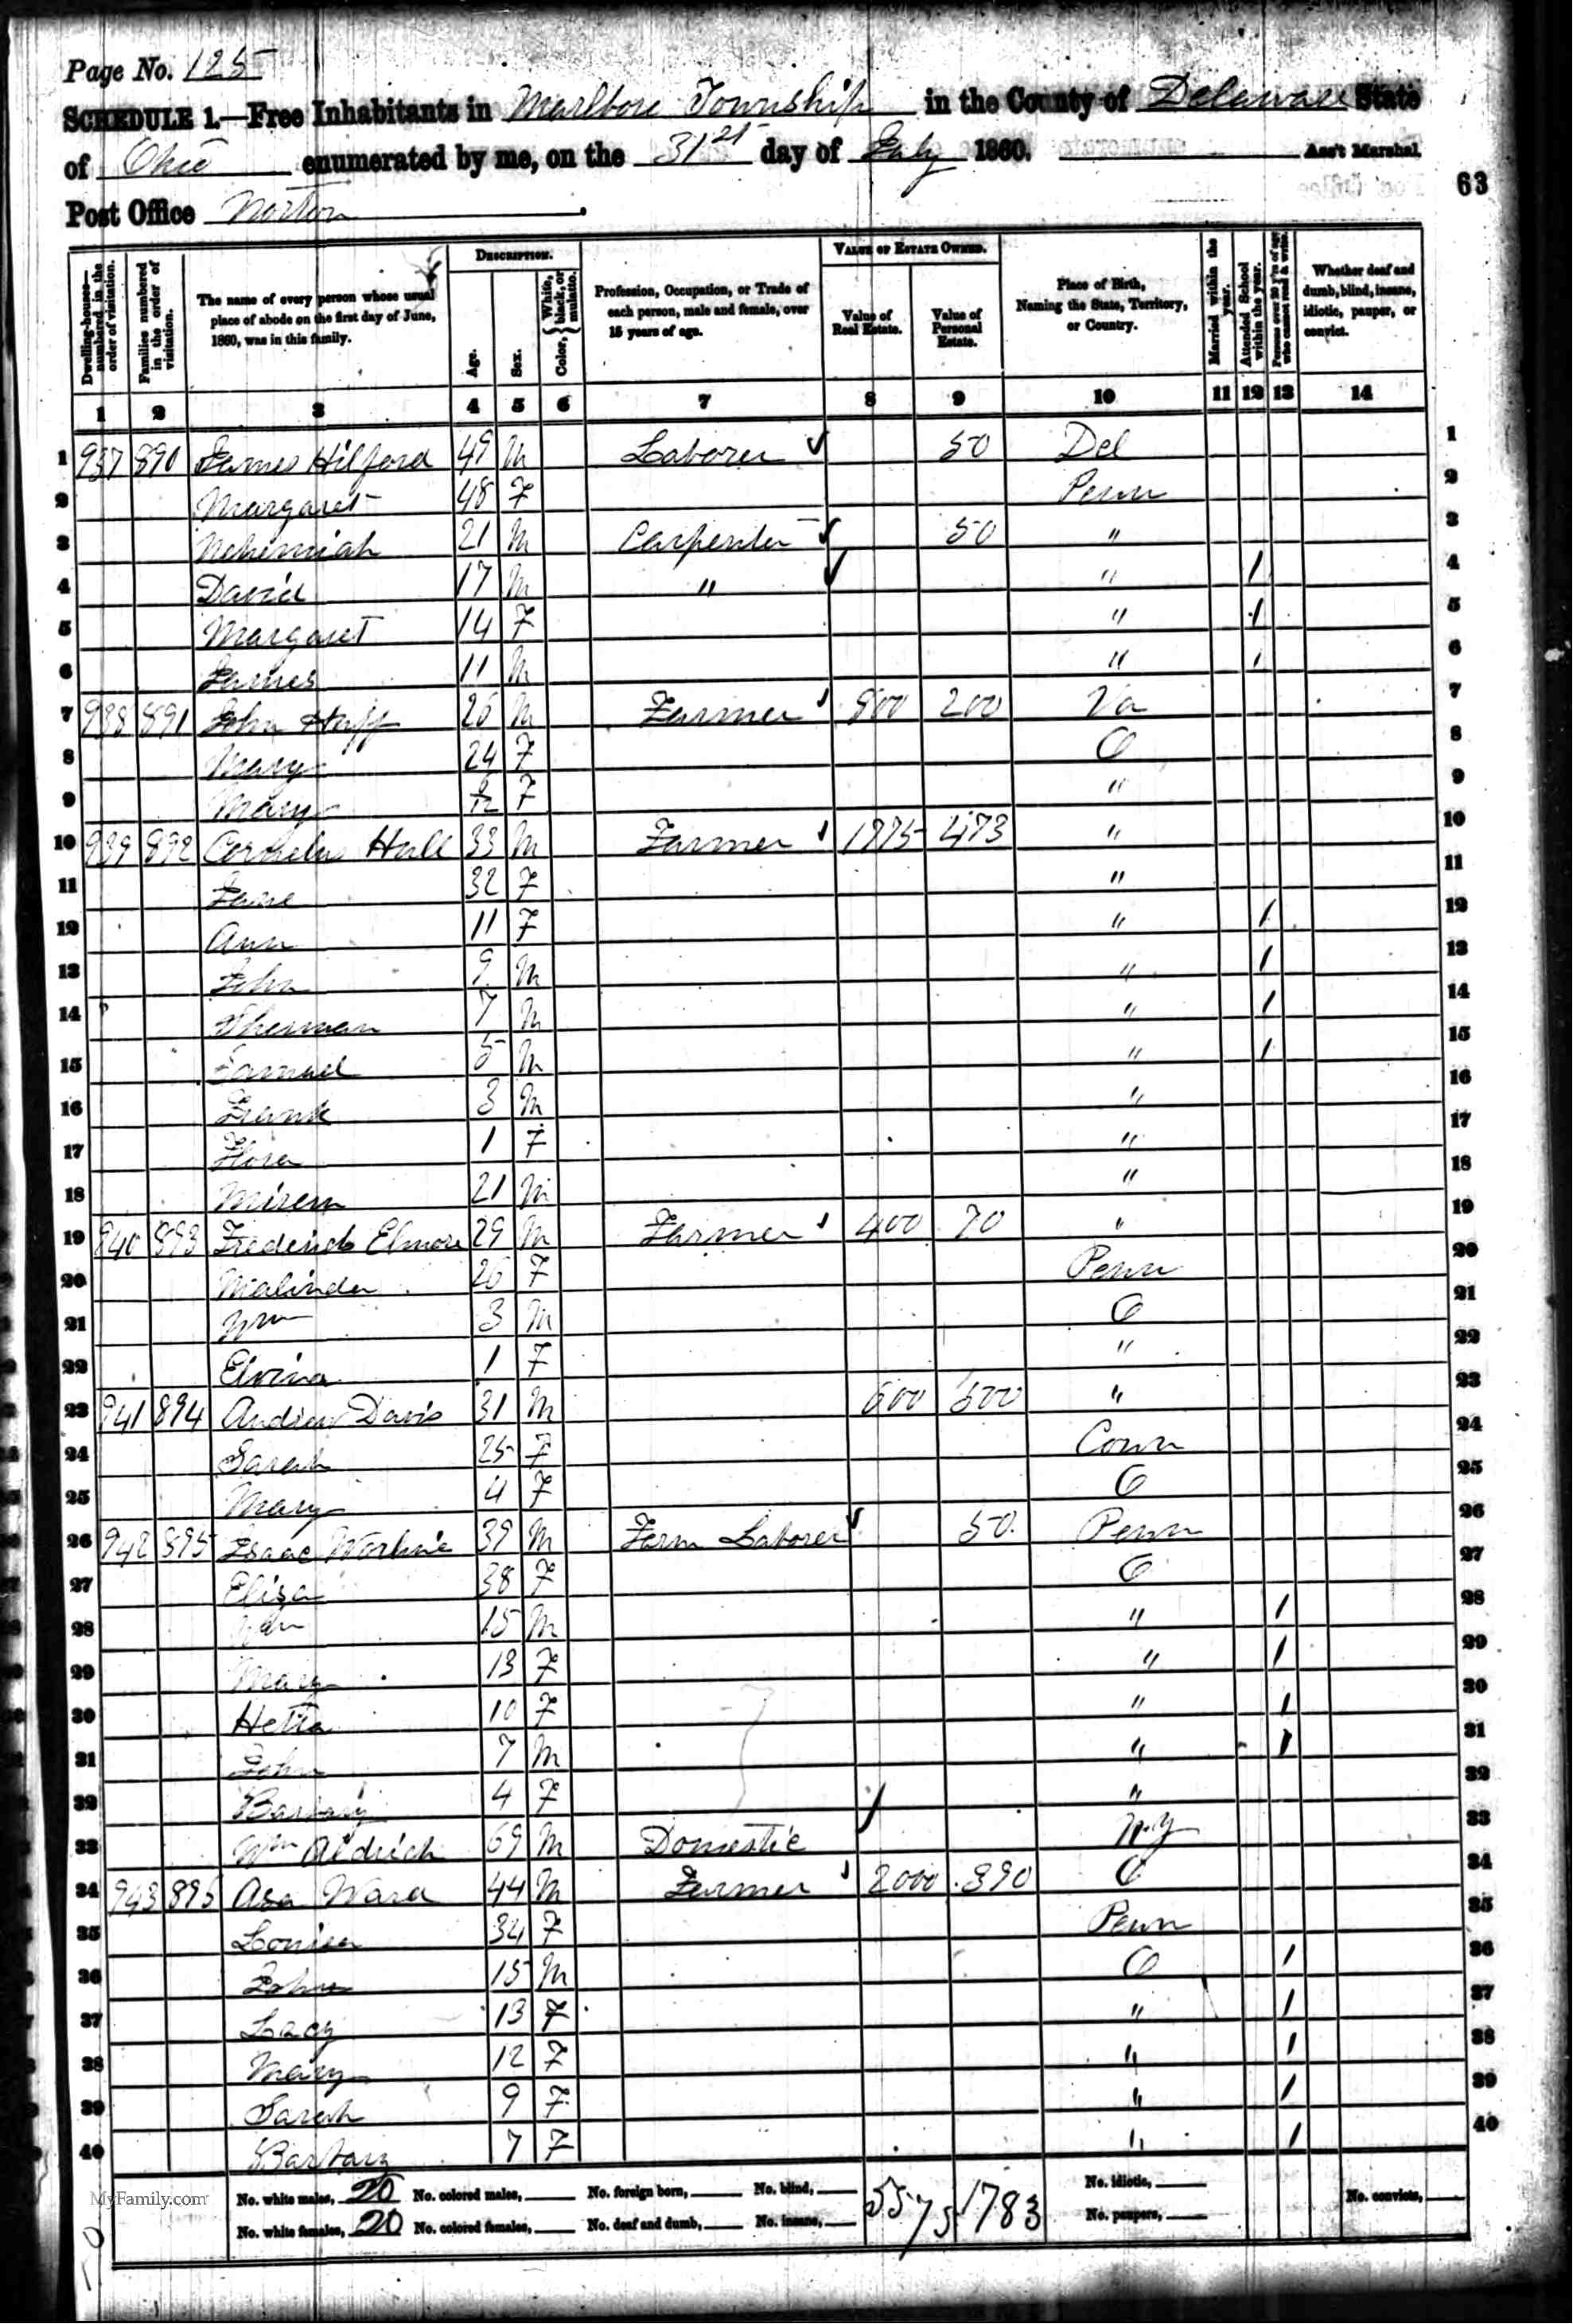 Page No. 125
SCHEDULE 1.—Free Inhabitants in Marlboro Township in the County of Delaware State
of Ohio enumerated by me, on the 31st day of July 1860. Ass't Marshal.
63
Post Office Norton
DESCRIPTION. VALUE OF ESTATE OWNED.
Dwelling-houses—numbered in the order of visitation. Families numbered in the order of visitation. The name of every person whose usual place of abode on the first day of June, 1860, was in this family. Age. Sex. Color, {White, black, or mulatto. Profession, Occupation, or Trade of each person, male and female, over 15 years of age. Value of Real Estate. Value of Personal Estate. Place of Birth, Naming the State, Territory, or Country. Married within the year. Attended School within the year. Persons over 20 y'rs of age who cannot read & write. Whether deaf and dumb, blind, insane, idiotic, pauper, or convict.
1 2 3 4 5 6 7 8 9 10 11 12 13 14
1 937 890 James Hilford 49 M Laborer 50 Del 1
2 Margaret 48 F Penn 2
3 Nehemiah 21 M Carpenter 50 " 3
4 David 17 M " " / 4
5 Margaret 14 F " / 5
6 James 11 M " / 6
7 938 891 John Huff 26 M Farmer 800 200 Va 7
8 Mary 24 F O 8
9 Mary F " 9
10 939 892 Cornelus Hull 33 M Farmer 1775 473 " 10
11 Jane 32 F " 11
12 Ann 11 F " / 12
13 John 9 M " / 13
14 Sherman 7 M " / 14
15 Samuel 5 M " / 15
16 Frank 3 M " 16
17 Flora 1 F " 17
18 21 M " 18
19 940 893 Frederick Elmore 29 M Farmer 400 70 " 19
20 Malinda 26 F Penn 20
21 Wm 3 M O 21
22 Elvina 1 F " 22
23 941 894 Andrew Davis 31 M 600 500 " 23
24 Sarah 25 F Conn 24
25 Mary 4 F O 25
26 942 895 Isaac Worline 39 M Farm Laborer 50 Penn 26
27 Eliza 38 F O 27
28 15 M " / 28
29 Mary 13 F " / 29
30 Hetta 10 F " / 30
31 John 7 M " / 31
32 Barbary 4 F " 32
33 Wm Aldrich 69 M Domestic N.Y 33
34 943 895 Asa Ward 44 M Farmer 2000 390 O 34
35 Louisa 34 F Penn 35
36 John 15 M O / 36
37 Lacy 13 F " / 37
38 Mary 12 F " / 38
39 Sarah 9 F " / 39
40 Barbary 7 F " / 40
No. white males, 20 No. colored males, No. foreign born, No. blind, 5575 1783 No. idiotic, No. convicts,
No. white females, 20 No. colored females, No. deaf and dumb, No. insane, No. paupers,
MyFamily.com